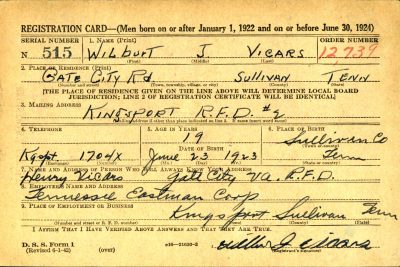 REGISTRATION CARD—(Men born on or after January 1, 1922 and on or before June 30, 1924)
SERIAL NUMBER 1. NAME (Print) ORDER NUMBER
N 515 Wilburt J. Vicars 12739
(First) (Middle) (Last)
2. PLACE OF RESIDENCE (Print)
Gate City Rd Sullivan Tenn
(Number and street) (Town, township, village, or city) (County) (State)
[THE PLACE OF RESIDENCE GIVEN ON THE LINE ABOVE WILL DETERMINE LOCAL BOARD
JURISDICTION; LINE 2 OF REGISTRATION CERTIFICATE WILL BE IDENTICAL]
3. MAILING ADDRESS
Kingsport R.F.D #2
[Mailing address if other than place indicated on line 2. If same insert word same]
4. TELEPHONE 5. AGE IN YEARS 6. PLACE OF BIRTH
19 Sullivan Co
DATE OF BIRTH (Town or county)
Kgpt. 1704X June 23 1923 Tenn
(Exchange) (Number) (Mo.) (Day) (Yr.) (State or country)
7. NAME AND ADDRESS OF PERSON WHO WILL ALWAYS KNOW YOUR ADDRESS
Henry Vicars Gate City Va. R.F.D.
8. EMPLOYER'S NAME AND ADDRESS
Tennessee Eastman Corp
9. PLACE OF EMPLOYMENT OR BUSINESS
Kingsport Sullivan Tenn
(Number and street or R. F. D. number) (Town) (County) (State)
I AFFIRM THAT I HAVE VERIFIED ABOVE ANSWERS AND THAT THEY ARE TRUE.
D. S. S. Form 1
(Revised 6-1-42) (over) 16—21630-2
(Registrant's signature)